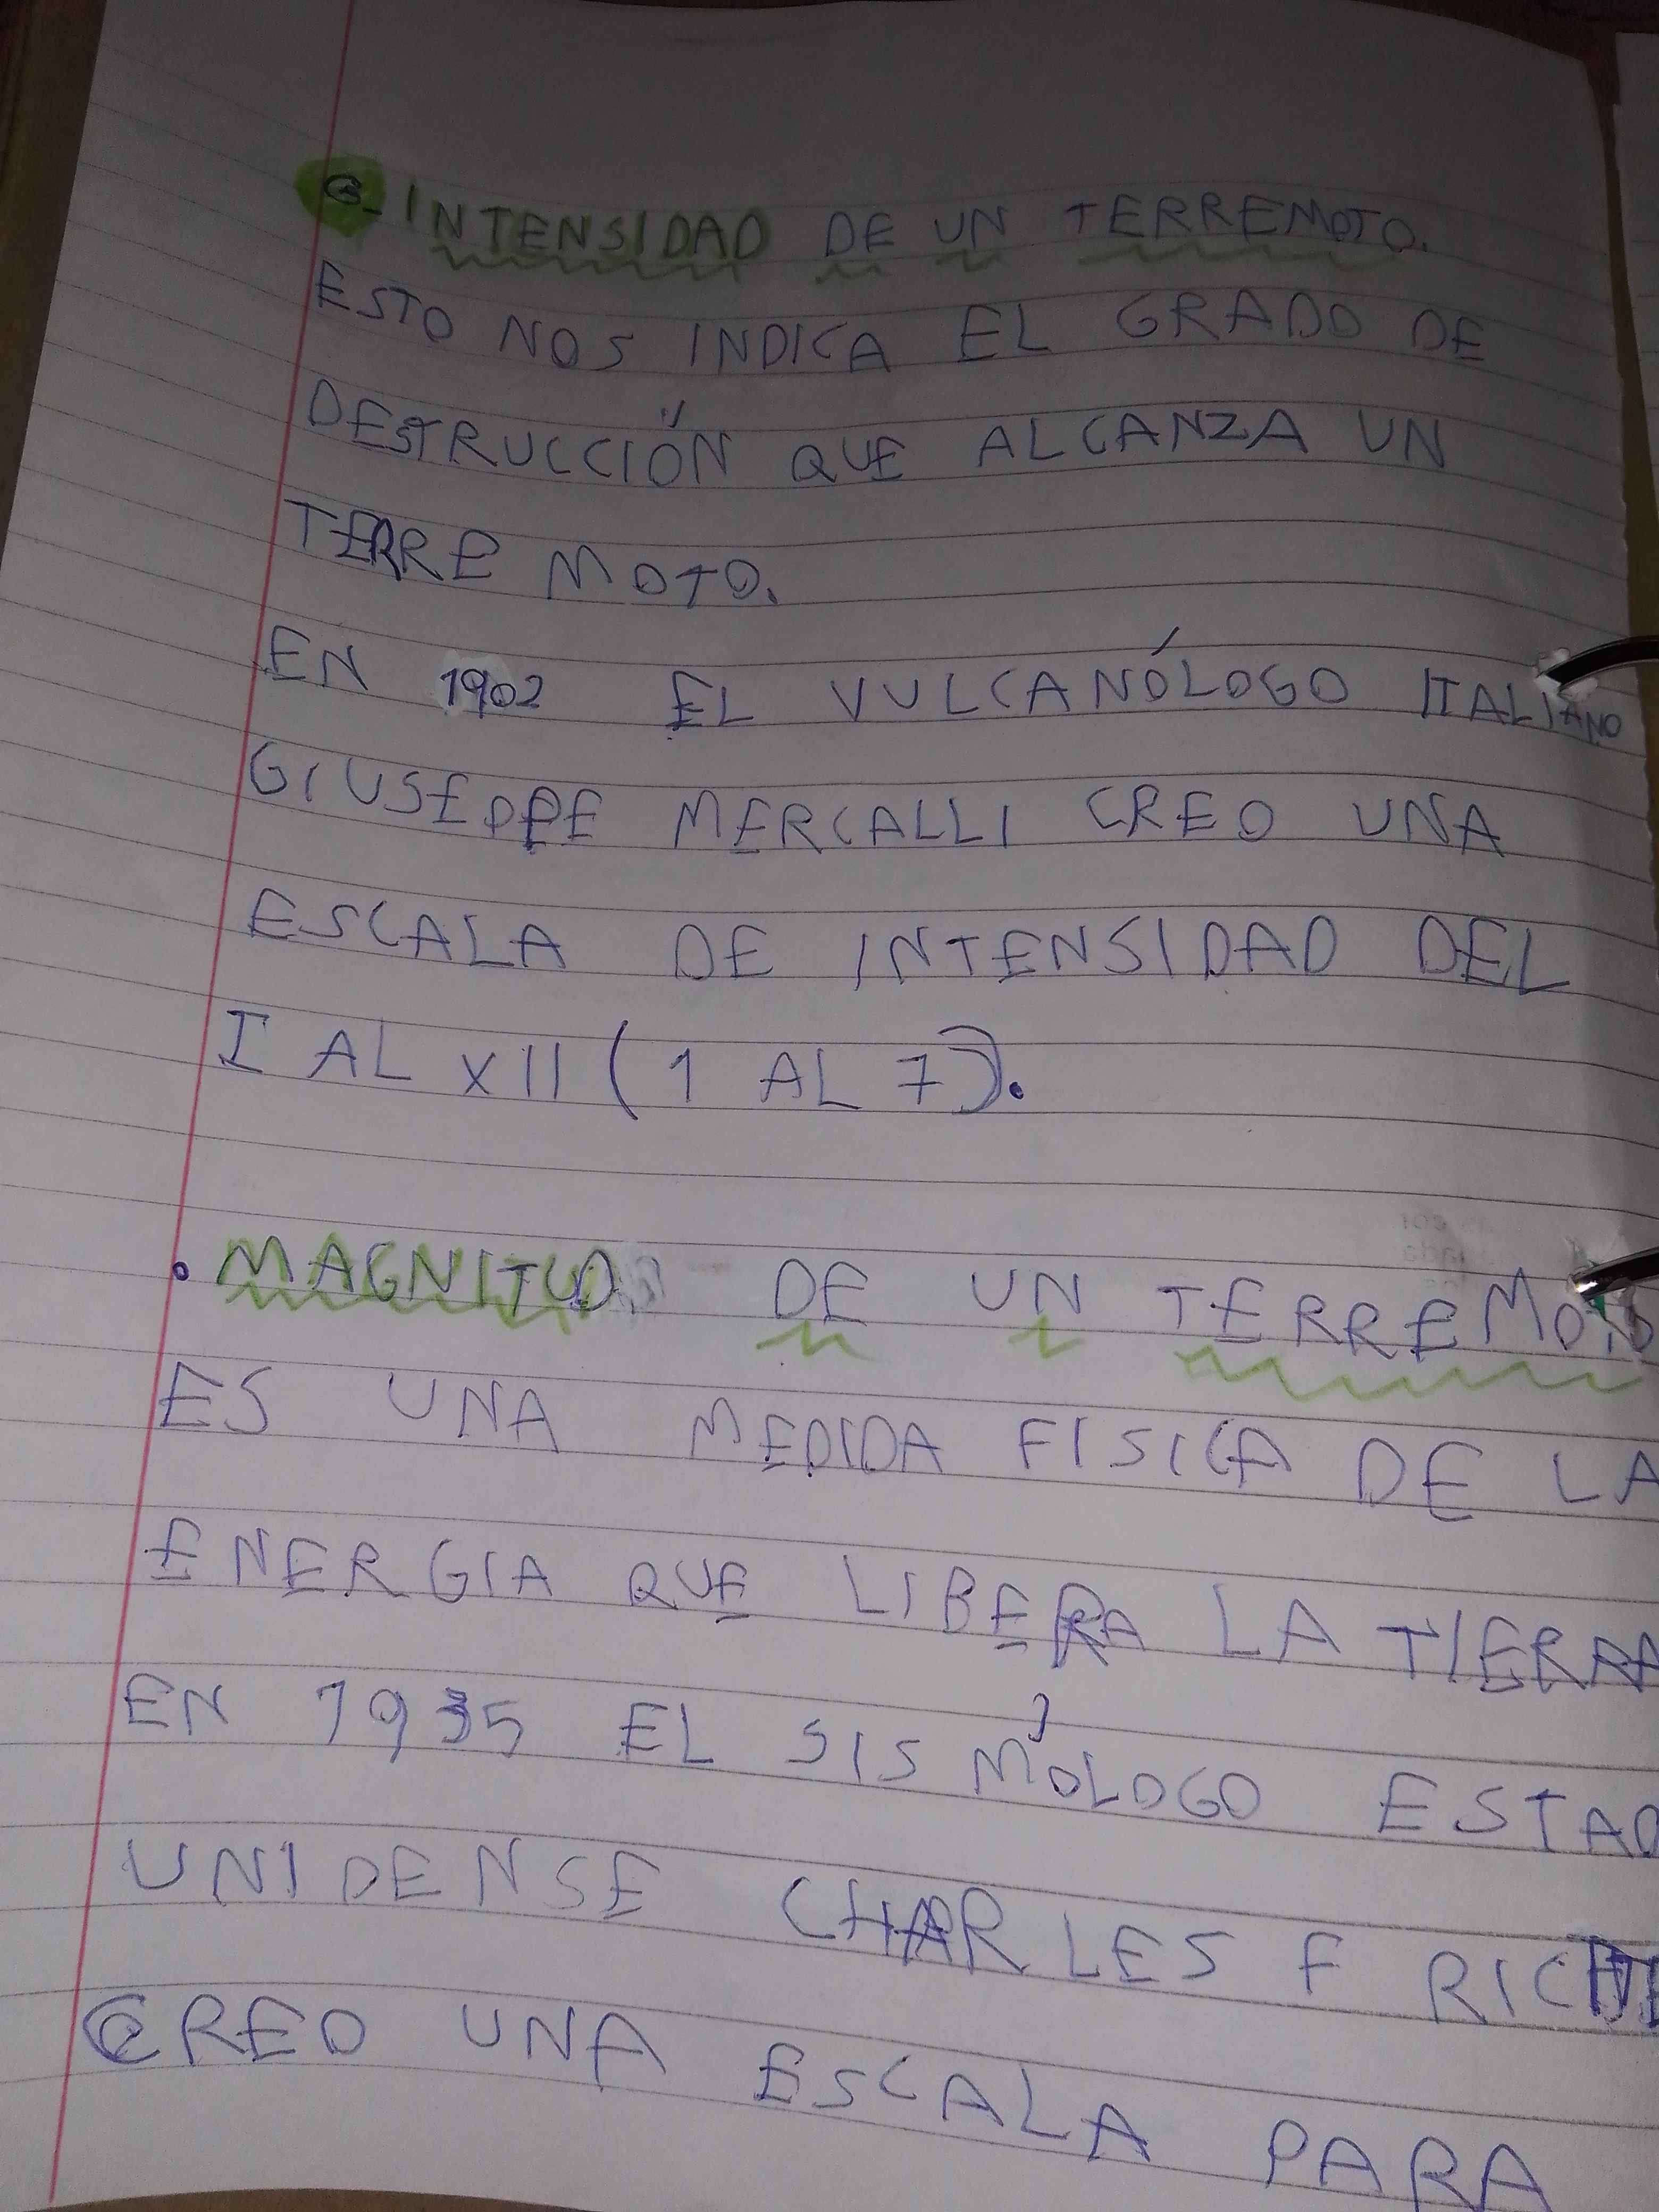 3- INTENSIDAD DE UN TERREMOTO.
ESTO NOS INDICA EL GRADO DE
DESTRUCCIÓN QUE ALCANZA UN
TERREMOTO.
EN 1902 EL VULCANÓLOGO ITALIANO
GIUSEPPE MERCALLI CREO UNA
ESCALA DE INTENSIDAD DEL
I AL XII (1 AL 7).
• MAGNITUD DE UN TERREMOTO
ES UNA MEDIDA FISICA DE LA
ENERGIA QUE LIBERA LA TIERRA
EN 1935 EL SISMÓLOGO ESTAD
UNIDENSE CHARLES F
CREO UNA ESCALA PARA